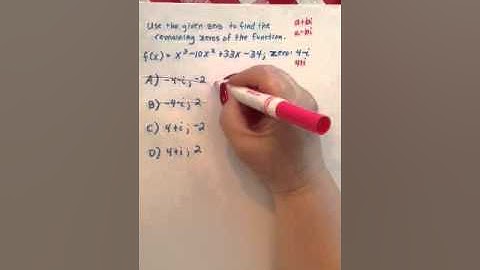 Use the given zero to find the
remaining zeros of the function.
a+bi
a-bi
f(x) = x³-10x²+33x-34; zero: 4-i
4+i
A) -4-i; -2
B) -4-i; 2
C) 4+i; -2
D) 4+i; 2